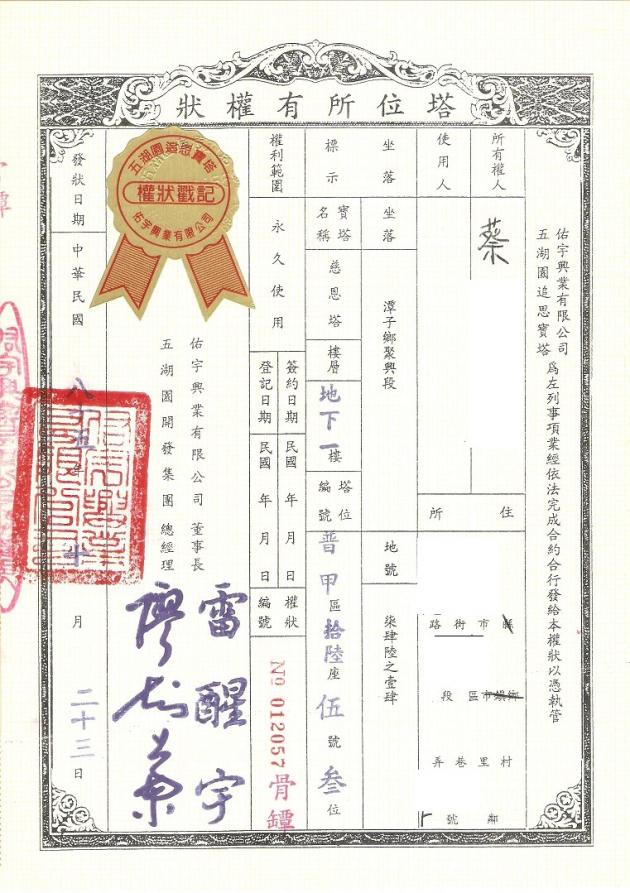 塔位所有權狀
佑宇興業有限公司
五湖園追思寶塔
為左列事項業經依法完成合約合行發給本權狀以憑執管
所有權人
蔡
住所
縣市街路
鄉鎮市區段
村里巷弄
鄰號
使用人
坐落
坐落
潭子鄉聚興段
地號
柒肆陸之壹肆
標示
寶塔名稱
慈恩塔
樓層
地下一樓
塔位編號
普甲區拾陸座伍號叁位
權利範圍
永久使用
簽約日期
民國 年 月 日
登記日期
民國 年 月 日
權狀編號
No 012057
骨罈
五湖園追思寶塔
權狀戳記
佑宇興業有限公司
佑宇興業有限公司 董事長
雷醒宇
五湖園開發集團 總經理
發狀日期
中華民國八十五年十月二十三日